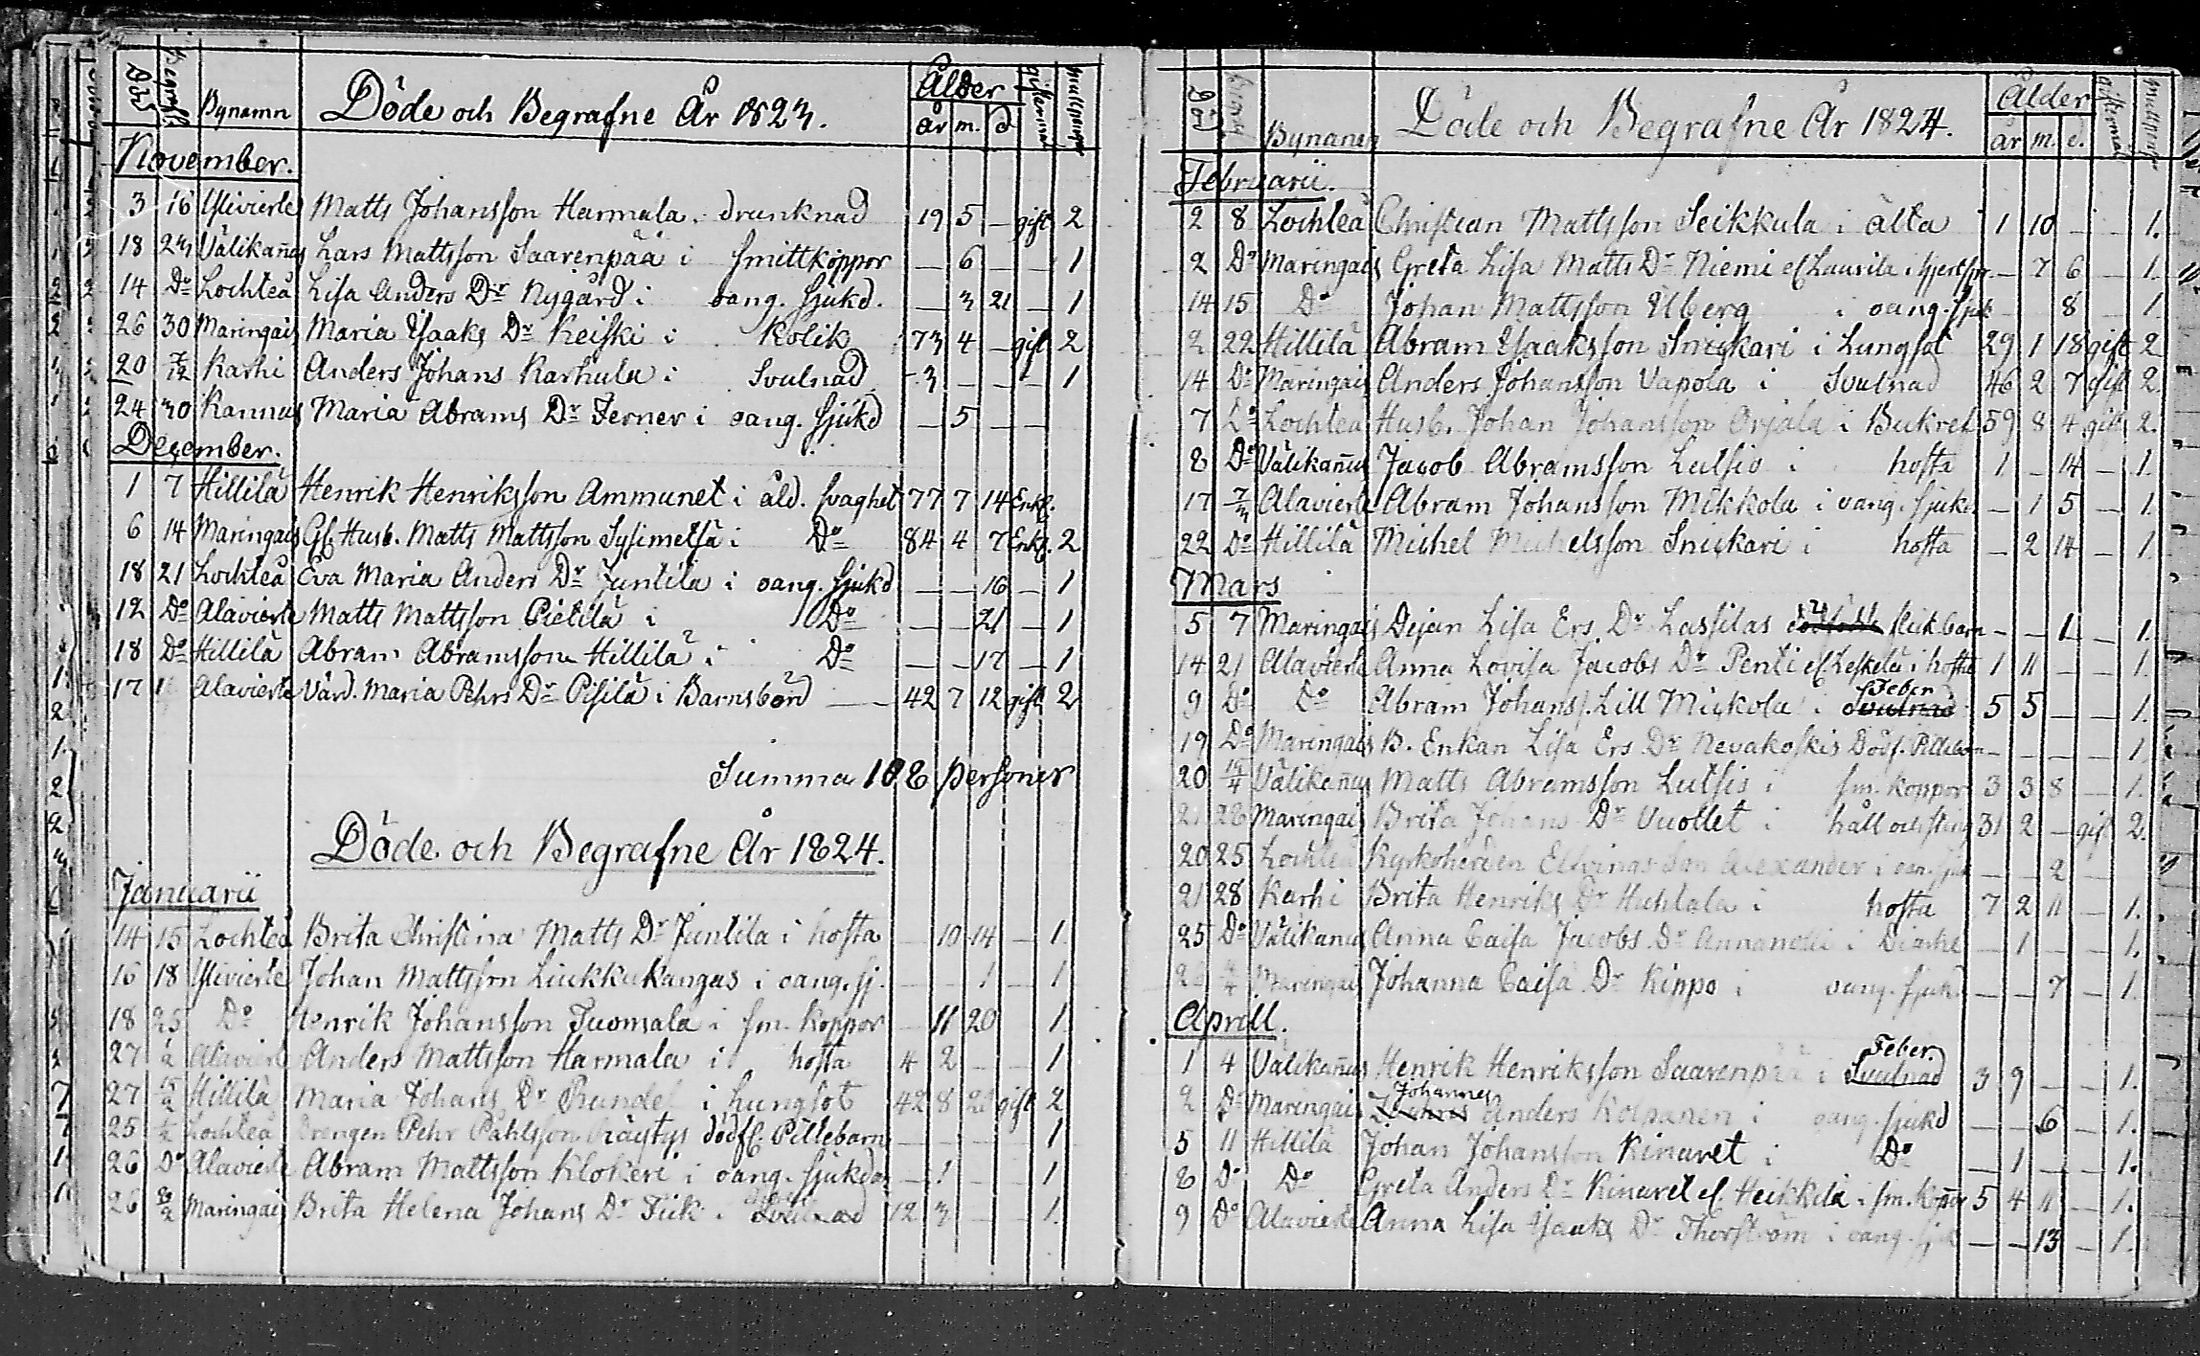 Död Begrafn Bynamn Döde och Begrafne År 1823. Ålder år m. d. giftermål mullpengar
November.
3 16 Ylivierle Matts Johansson Harmala. drunknad 19 5 – gift 2
18 23 Välikañus Lars Mattsson Saarenpää i smittkoppor – 6 – – 1
14 Do Lochteå Lisa Anders Dr Nygård i oang. sjukd. – 3 21 – 1
26 30 Maringais Maria Isaaks Dr Keiski i Kolik 73 4 – gift 2
20 7/12 Karhi Anders Johans Karhula i Svulnad 3 – – – 1
24 30 Kannus Maria Abrams Dr Ferner i oang. sjukd – 5 – –
December.
1 7 Hillilä Henrik Henriksson Ammunet i åld. svaghet 77 7 14 Enkl.
6 14 Maringais Gl. Husb. Matts Mattsson Sysimetsä i Do 84 4 7 Enkl. 2
18 21 Lochteå Eva Maria Anders Dr Juntila i oang. sjukd – – 16 – 1
12 Do Alavierle Matts Mattsson Pietilä i Do – – 21 – 1
18 Do Hillilä Abram Abramsson Hillilä i Do – – 17 – 1
17 Alavierle Värd. Maria Pehrs Dr Pisilä i Barnsbörd – 42 7 12 gift 2
Summa 108 personer
Döde och Begrafne År 1824.
Januarii
14 15 Lochteå Brita Christina Matts Dr Juntila i hosta – 10 14 – 1.
16 18 Ylivierle Johan Mattsson Liukkukangas i oang. sj. – – 1 1
18 25 Do Henrik Johansson Tuomala i sm. koppor – 11 20 1.
27 1/2 Alavierle Anders Mattsson Harmala i hosta 4 2 – – 1
27 15/2 Hillilä Maria Johans Dr Rundel i Lungsot 42 8 gift 2
25 1/2 Lochteå Drengen Pehr Påhlsson Räystys dödf. Pillebarn – – – – 1
26 Do Alavierle Abram Mattsson Klokeri i oang. sjukdo – 1 – – 1
26 8/2 Maringais Brita Helena Johans Dr Fick i Svulnad 12 3 – – 1.
Död Bynamn Döde och Begrafne År 1824. Ålder år m. d. gifterm mullpengar
Februarii.
2 8 Lochteå Christian Mattsson Seikkula i älta 1 10 – – 1.
2 Do Maringais Greta Lisa Matts Dr Niemi el Laurila i – 7 6 – 1.
14 15 Do Johan Mattsson Ulberg i oang. sjuk 8 1.
2 22 Hillilä Abram Isaaksson Snickari i Lungsot 29 1 18 gift 2
14 Do Maringais Anders Johansson Vapola i Svulnad 46 2 7 gift 2.
7 Do Lochteå Husb. Johan Johansson Orjala i Bukref 59 8 4 gift 2.
8 Do Välikañus Jacob Abramsson Lutsio i hosta 1 – 14 – 1.
17 7/3 Alavierle Abram Johansson Mikkola i oang. sjukd – 1 5 – 1.
22 Do Hillilä Michel Michelsson Snickari i hosta – 2 14 – 1.
Mars
5 7 Maringais Dejan Lisa Ers. Dr Lassilas flick barn – – 1 – 1.
14 21 Alavierle Anna Lovisa Jacobs Dr Penti el Leskelä i hosta 1 11 – – 1.
Feber
9 Do Do Abram Johans s. Lill Mickola i Svulnad 5 5 – – 1.
19 Do Maringais B. Enkan Lisa Ers. Dr Nevakoskis Dödf. Pillebarn – – – – 1.
20 15/4 Välikañus Matts Abramsson Lutsis i sm. koppor 3 3 8 – 1.
21 28 Maringais Brita Johans Dr Vuollet i håll och sting 31 2 – gift 2.
20 25 Lochteå Kyrkoherden Son Alexander i – – 2
21 28 Karhi Brita Henriks Dr Huhtala i hosta 7 2 11 – 1.
25 Do Välikañus Anna Caisa Jacobs Dr Annanolli i – 1 – – 1.
26 4/4 Maringais Johanna Caisa Dr Kippo i oang. sjukd – – 7 – 1.
Aprill.
Feber.
1 4 Välikañus Henrik Henriksson Saarenpää i Svulnad 3 9 – – 1.
Johannes
2 Do Maringais Anders Kolpanen i oang. sjukd – – 6 – 1.
5 11 Hillilä Johan Johansson Kinaret i Do – 1 – – 1.
8 Do Do Greta Anders Dr Kinaret el. Heikkilä i sm. kopor 5 4 11 – 1.
9 Do Alavierle Anna Lisa Isaaks Dr Thorström i oang. – – 13 – 1.